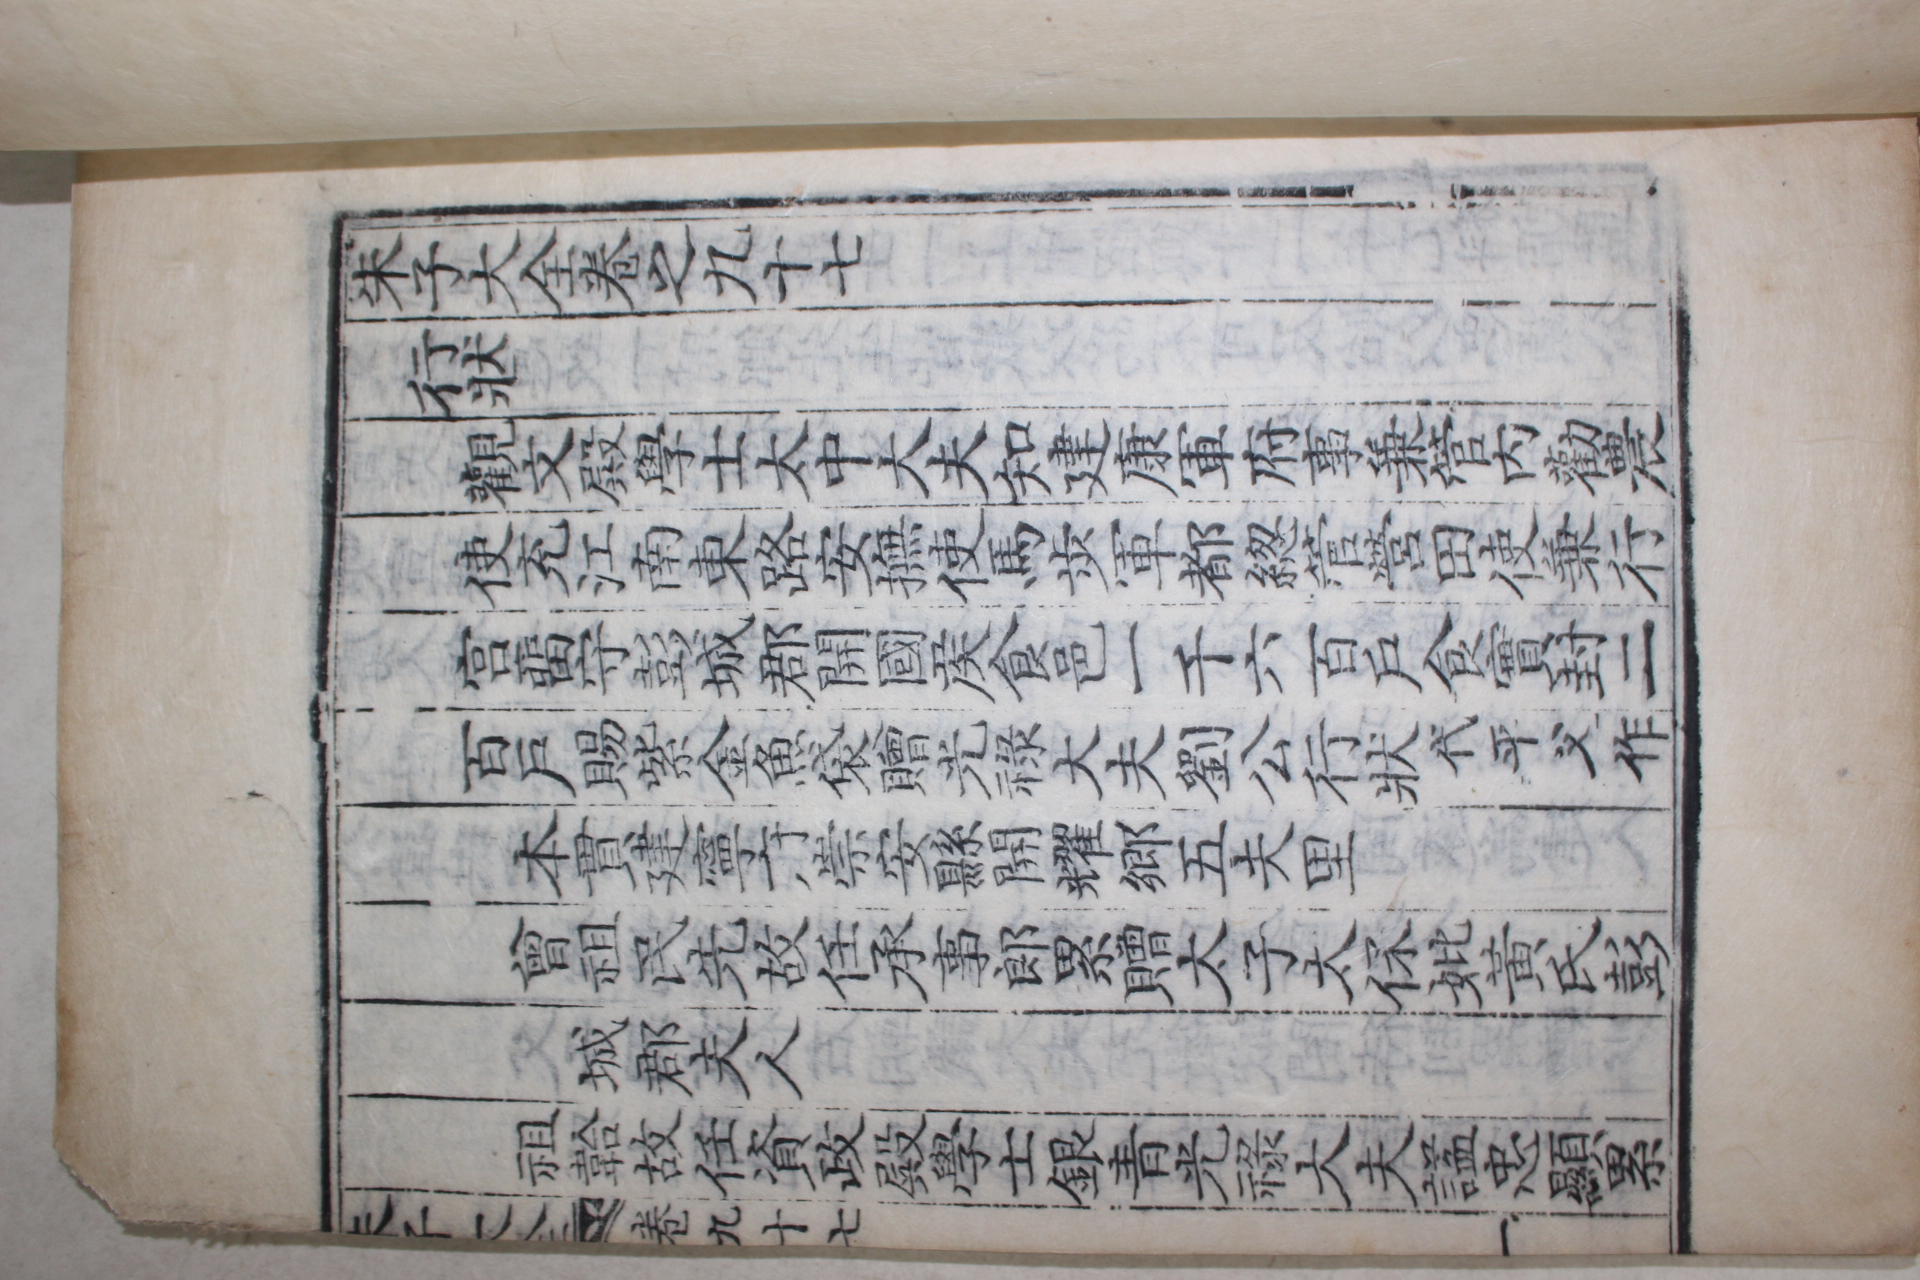 朱子大全卷之九十七
行狀
觀文殿學士太中大夫知建康軍府事兼管內勸農
使充江南東路安撫使馬步軍都總管營田使兼行
宮畱守彭城郡開國侯食邑一千六百戶食實封二
百戶賜紫金魚袋贈光祿大夫劉公行狀代平父作
本貫建寧府崇安縣開耀鄉五夫里
曾祖民先故任承事郎累贈太子太保妣黃氏彭
城郡夫人
祖韐故任資政殿學士銀青光祿大夫謚忠顯累
朱子大全 卷九十七 一